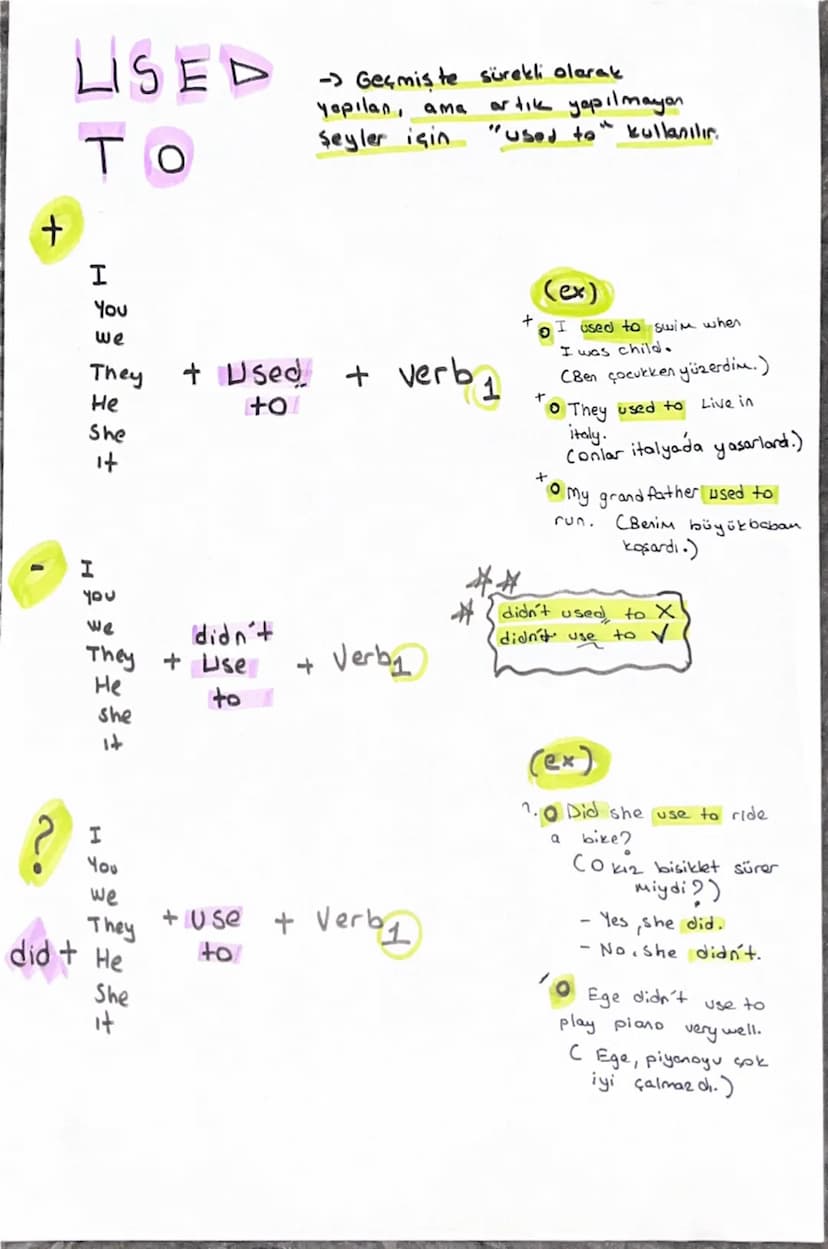 USED
TO
→ Geçmişte sürekli olarak
yapılan, ama artık yapılmayan
şeyler için "used to" kullanılır.
+
I
You
we
They
He
She
it
+ Used
to
+ verb1
(ex)
+ o I used to swim when
I was child.
(Ben çocukken yüzerdim.)
+ o They used to Live in
italy.
(onlar italya'da yaşarlardı.)
+ o My grandfather used to
run. (Benim büyükbabam
koşardı.)
-
I
you
we
They
He
she
it
+ didn't
Use
to
+ Verb1
didn't used to X
didn't use to ✓
(ex)
?. o Did she use to ride
a bike?
(O kız bisiklet sürer
miydi?)
- Yes, she did.
- No, She didn't.
o Ege didn't use to
play piano very well.
( Ege, piyanoyu çok
iyi çalmazdı.)
?
did +
I
You
We
They
He
She
it
+ use
to
+ Verb1